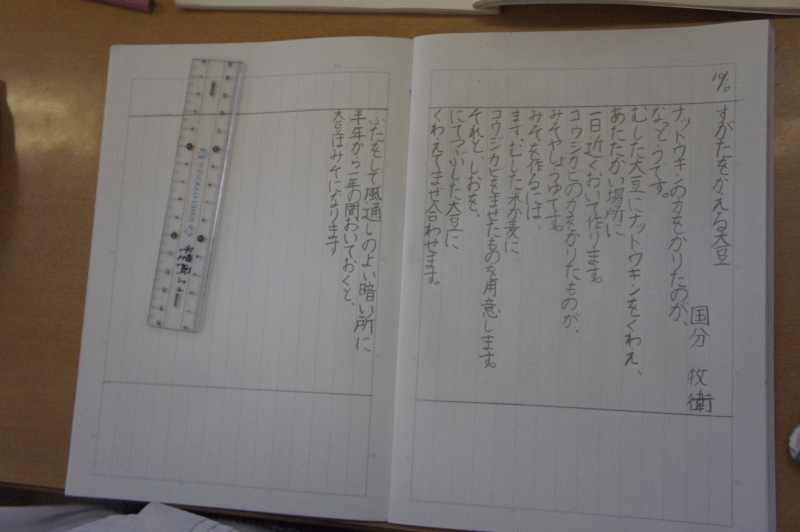 10/6
すがたをかえる大豆
国分 牧衛
ナットウキンの力をかりたのが、
なっとうです。
むした大豆にナットウキンをくわえ、
あたたかい場所に
一日近くおいて作ります。
コウジカビの力をかりたものが、
みそやしょうゆです。
みそを作るには、
ます、むした米か麦に
コウジカビをまぜたものを用意します。
それと、しおを、
にてつぶした大豆に
くわえてまぜ合わせます。
ふたをして風通しのよい暗い所に
半年から一年の間おいておくと、
大豆はみそになります